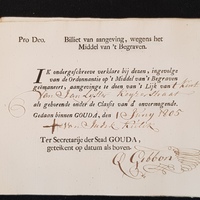 Pro Deo. Billiet van aangeving, wegens het
Middel van 't Begraven.
IK ondergeschreeve verklare bij dezen, ingevolge
van de Ordonnantie op 't Middel van 't Begraven
geëmaneert, aangevinge te doen van 't Lijk van 't kint
van Jan
als gehorende onder de Classis van d' onvermogende.
Gedaan binnen GOUDA, den 1 Juny 1805
Ter Secretarije der Stad GOUDA,
geteikent op datum als boven.